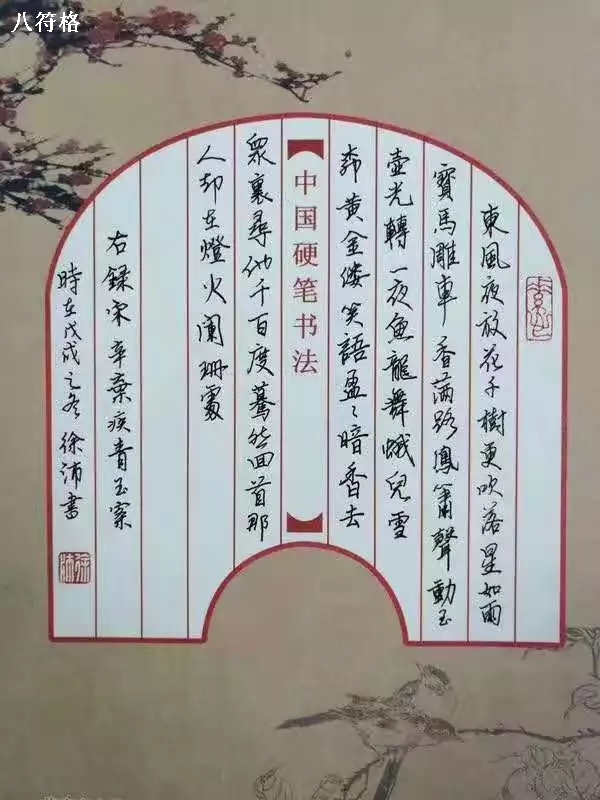 八符格
東風夜放花千樹更吹落星如雨
寶馬雕車香满路鳳簫聲動玉
壺光轉一夜魚龍舞蛾兒雪
柳黄金缕笑語盈〻暗香去
中国硬笔书法
眾裏尋他千百度驀然回首那
人却在燈火闌珊處
右録宋辛棄疾青玉案
時在戊戌之冬徐沛書